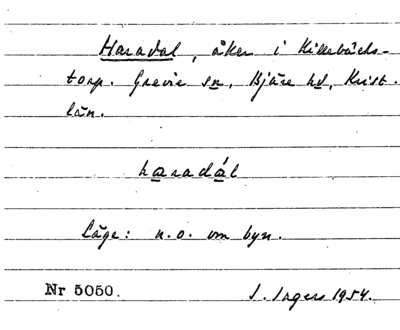 Haradal, åker i Killebäcks-
torp. Grevie sn, Bjäre hd, Krist.
län.
haradál
Läge: n.o. om byn.
Nr 5050. I. Ingers 1954.